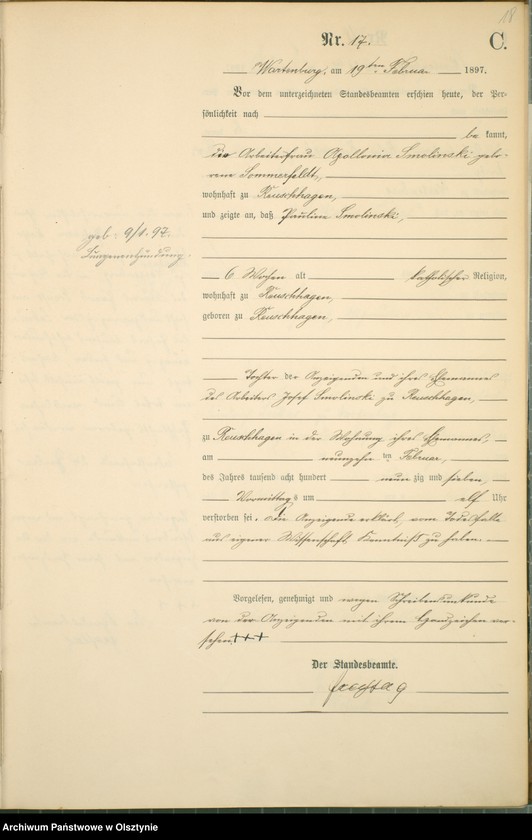 18
Nr. 17.
C.
Wartenburg, am 19ten Februar 1897.
Vor dem unterzeichneten Standesbeamten erschien heute, der Per-
sönlichkeit nach
be kannt,
die Arbeiterfrau Apollonia Smolinski gebo-
rene Sommerfeldt,
wohnhaft zu Reuschhagen,
und zeigte an, daß Pauline Smolinski,
geb: 9/1. 97.
Lungenentzündung.
6 Wochen alt katholischer Religion,
wohnhaft zu Reuschhagen,
geboren zu Reuschhagen,
Tochter der Anzeigenden und ihres Ehemannes
des Arbeiters Josef Smolinski zu Reuschhagen,
zu Reuschhagen in der Wohnung ihres Ehemannes,
am neunzehn ten Februar,
des Jahres tausend acht hundert neun zig und sieben,
Vormittags um elf Uhr
verstorben sei. Die Anzeigende erklärt, vom Todesfalle
aus eigener Wissenschaft Kenntniß zu haben.
Vorgelesen, genehmigt und wegen Schreibensunkunde
von der Anzeigenden mit ihrem Handzeichen ver-
sehen +++
Der Standesbeamte.
Archiwum Państwowe w Olsztynie